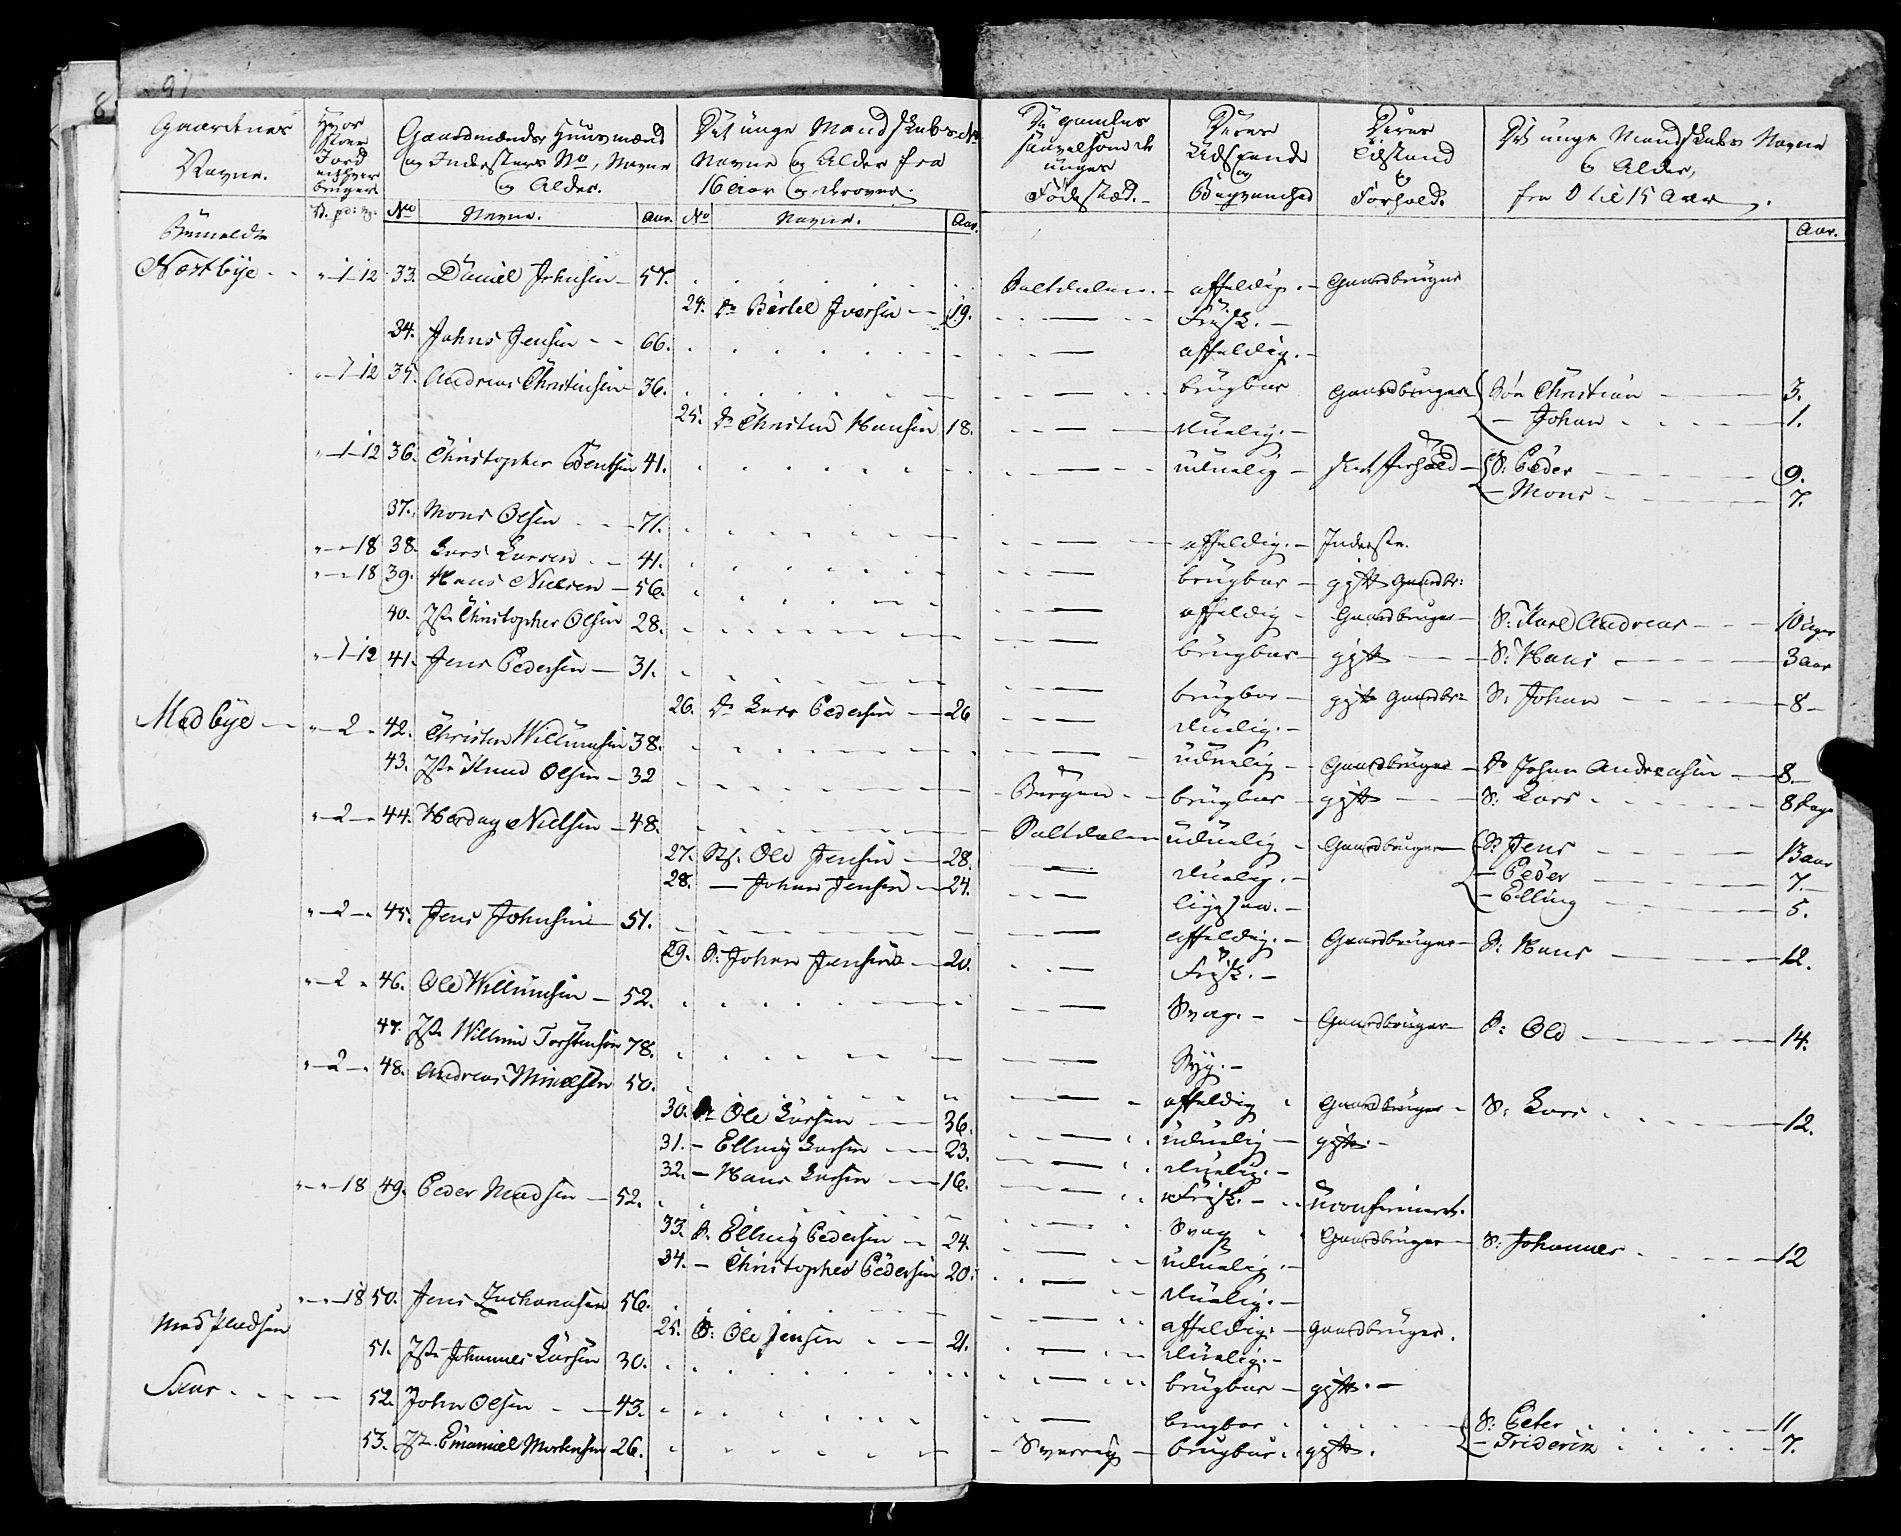 8 9
Gaardenes Navne.
Hvor Stoer Jord enhver bruger
Gaardmænds Huusmænd og Indersters No, Navne og Alder.
Det unge Mandskabs Navne og Alder fra 16 Aar og derover.
De gamles saavelsom de unges Fødested.
Deres Udseende og
Deres Tilstand og Forhold.
Det unge Mandskabs Navne og Alder, fra 0 til 15 Aar.
No Navne. Aar. No Navne. Aar. Aar.
Bemeldte
Næstbye 1 12 33. Daniel Johnsen 57. Saltdalen affeldig. Gaardbruger
24. Bertel Iversen 19. Frisk.
34. Johns Jensen 66. affeldig.
1 12 35. Andreas Christensen 36. brugbar Gaardbruger Søn Christian 3.
25. Christen Hansen 18. duelig. Johan 1.
1 12 36. Christopher Bentsen 41. uduelig slet forhold S: Peder 9.
Mons 7.
37. Mons Olsen 71. affeldig. Inderste.
18 38. Lars Larsen 41. brugbar gift Gaardbr:
18 39. Hans Nielsen 56. affeldig Gaardbruger S: Karl Andreas 10 uger
40. Christopher Olsen 28. brugbar gift S: Hans 3 aar
1 12 41. Jens Pedersen 31. brugbar gift Gaardbr: S: Johan 8
26. Lars Pedersen 26 duelig.
Medbye 2 42. Christen Willumsen 38. uduelig Gaardbruger Johan Andreasen 8
43. Knud Olsen 32 Bergen brugbar gift S: Lars 8 dage
2 44. Hartvig Nielsen 48. Saltdalen uduelig Gaardbruger S: Jens 13 aar
27. Ole Jensen 28. duelig. Peder 7.
28. Johan Jensen 24. ligesaa. Elling 5.
2 45. Jens Johnsen 51. affeldig. Gaardbruger S: Hans 12.
29. S: Johan Jensen 20. Frisk.
2 46. Ole Willumsen 52. Svag. Gaardbruger S: Ole 14.
47. Willum Torstensen 78. Syg.
2 48. Andreas 50. affeldig Gaardbruger S: Lars 12.
30. Ole Larsen 36. uduelig gift.
31. Elling Larsen 23. duelig.
32. Hans Larsen 16. Frisk. uconfirmeret.
18 49. Peder Madsen 52. Svag Gaardbruger S: Johannes 12
33. S. Elling Pedersen 24. uduelig.
34. Christopher Pedersen 20. duelig.
18 50. Jens Zachariasen 56. affeldig. Gaardbruger.
Med Pladsen 25. S: Ole Jensen 21. duelig.
51. Johannes Larsen 30. brugbar gift.
52. John Olsen 43. brugbar S: Peter 11
53. Emanuel Mortensen 26. Sverrig brugbar gift. Friderik 7.